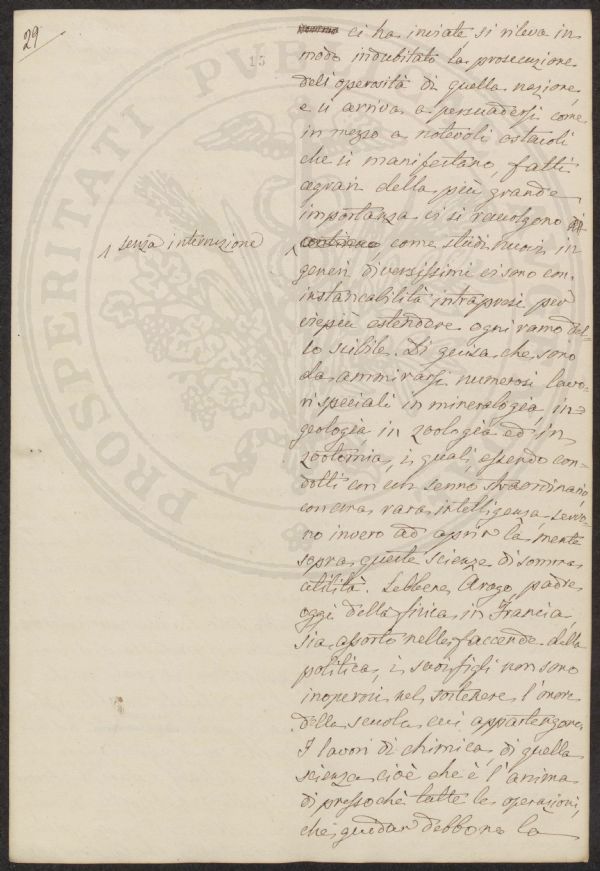 29
15
PROSPERITATI PVBLI
ci ha inviate, si rileva in
modo indubitato la prosecuzione
dell'operosità di quella nazione,
e si arriva a persuadersi come
in mezzo a notevoli ostacoli
che si manifestano, fatti
della più grande
importanza vi si raccolgono di
continuo, come studi nuovi in
senza interruzione
generi diversissimi vi sono con
instancabilità intrapresi per
viepiù estendere ogni ramo del-
lo scibile. Di guisa che sono
da ammirarsi numerosi lavo-
ri speciali in mineralogia, in
geologia in zoologia ed in
zootomia, i quali, essendo con-
dotti con un senno straordinario,
con una rara intelligenza, servo-
no invero ad aprir la mente
sopra queste scienze di somma
utilità. Sebbene Arago, padre
oggi della fisica in Francia,
sia assorto nelle faccende della
politica, i suoi figli non sono
inoperosi nel sostenere l'onore
della scuola cui appartengono.
I lavori di chimica, di quella
scienza cioè che è l'anima
di pressochè tutte le operazioni,
che guidar debbono la